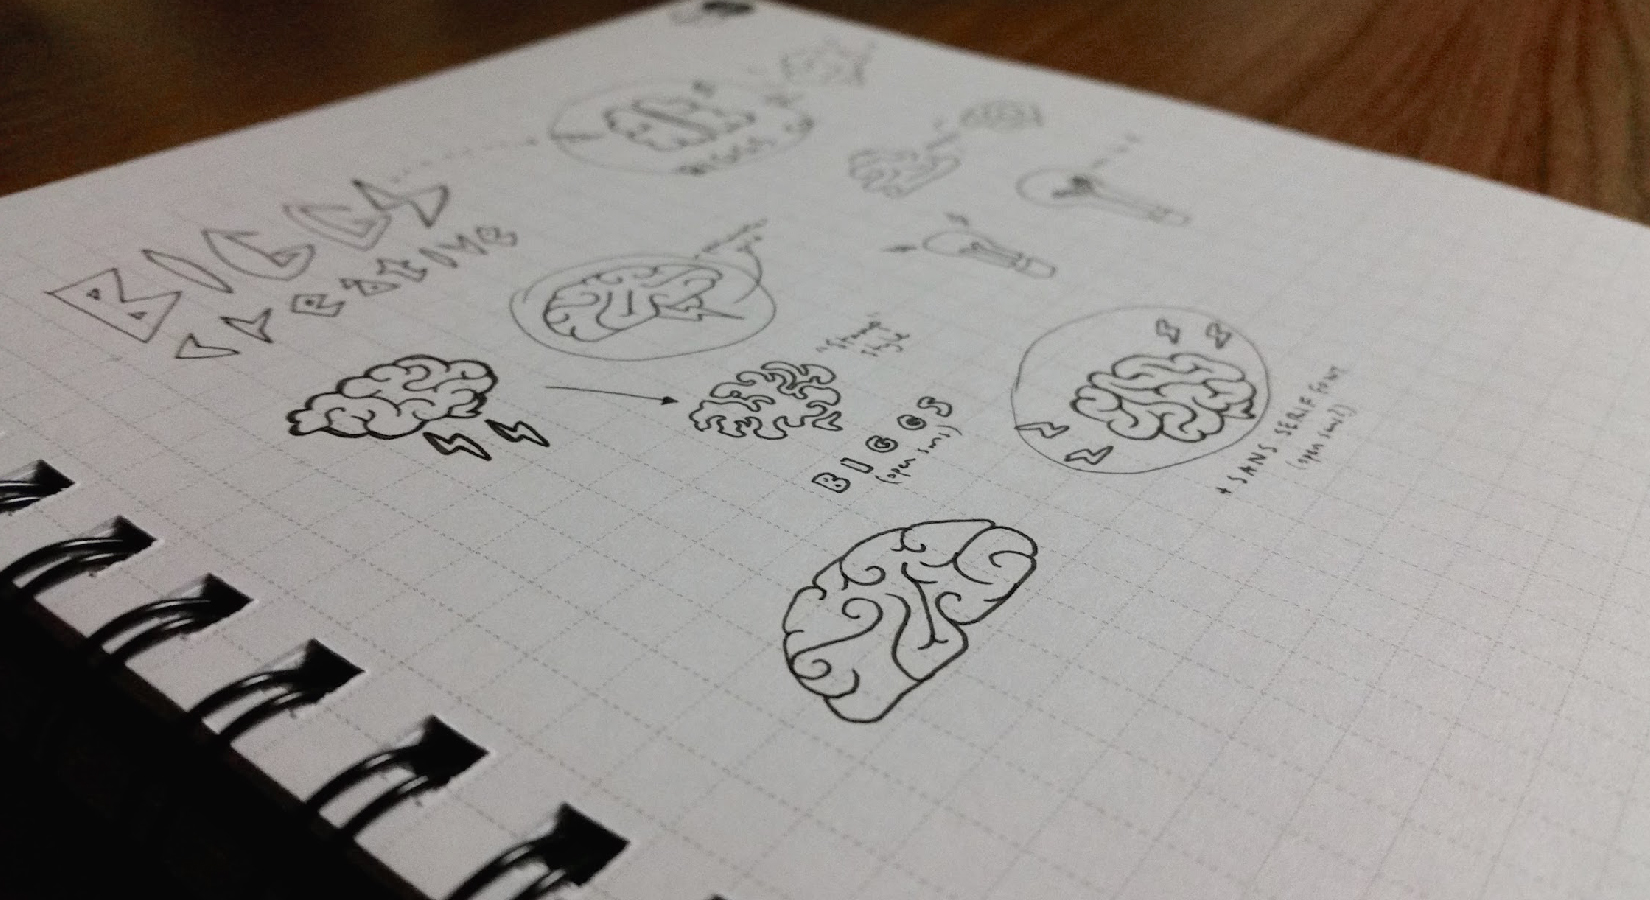 BIGGS
creative
BIGGS
"Stamp"
style
BIGGS
(open sans)
+ SANS SERIF FONT
(open sans)